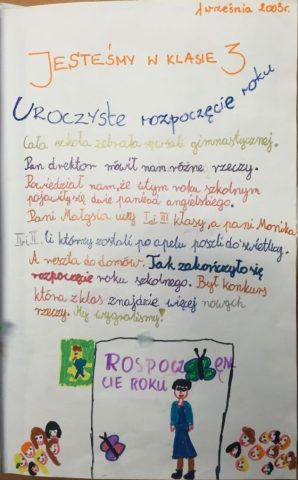 1 września 2003r.
JESTEŚMY W KLASIE 3
UROCZYSTE rozpoczęcie roku
Cała szkoła zebrała się w sali gimnastycznej.
Pan drektor mówił nam różne rzeczy.
Powiedział nam, że w tym roku szkolnym
pojawiły się dwie pani od angielskiego.
Pani Małgsia uczy I i III klasy, a pani Monika
II i V. Ci którzy zostali po apelu poszli do świetlicy.
A reszta do domów. Tak zakończyło się
rozpoczęcie roku szkolnego. Był konkurs
która z klas znajdzie więcej nowych
rzeczy. My wygraliśmy!
ROSPOCZĘM
CIE ROKU